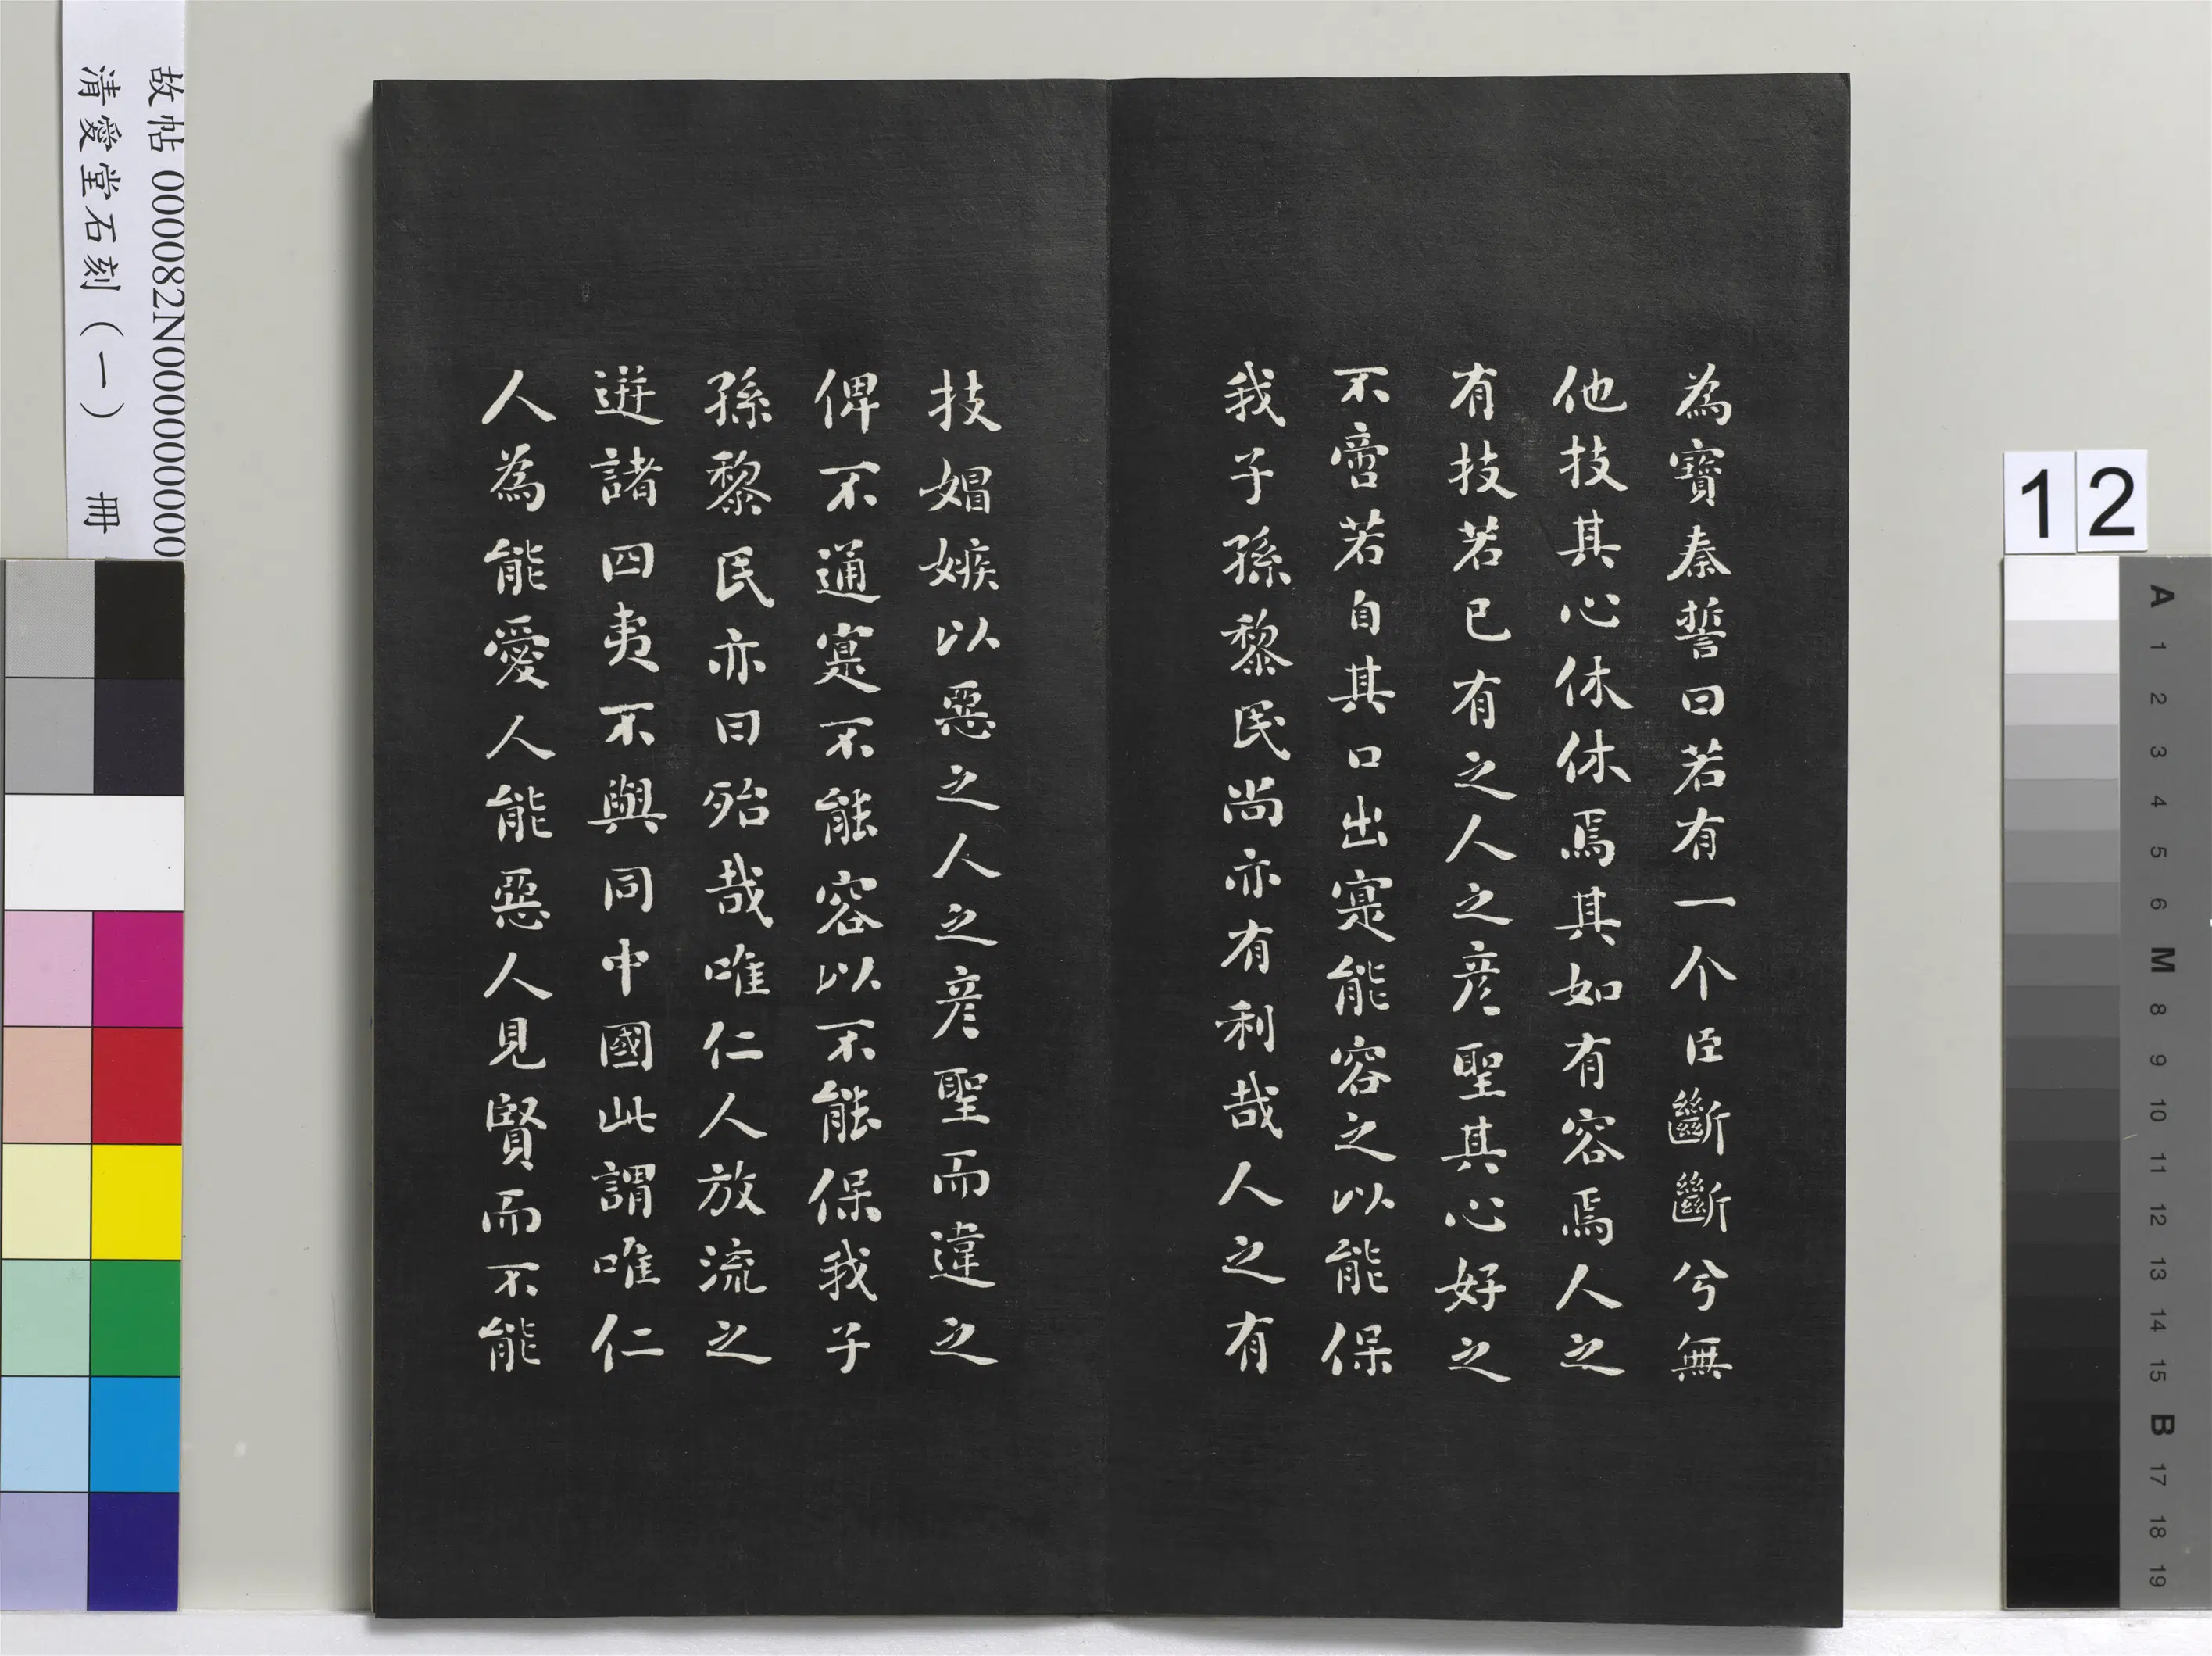 為寶秦誓曰若有一个臣斷斷兮無
他技其心休休焉其如有容焉人之
有技若已有之人之彥聖其心好之
不啻若自其口出寔能容之以能保
我子孫黎民尚亦有利哉人之有
技媢嫉以惡之人之彥聖而違之
俾不通寔不能容以不能保我子
孫黎民亦曰殆哉唯仁人放流之
迸諸四夷不與同中國此謂唯仁
人為能愛人能惡人見賢而不能
故帖 000082N000000000
清愛堂石刻(一) 冊
12
A
1
2
3
4
5
6
M
8
9
10
11
12
13
14
15
B
17
18
19